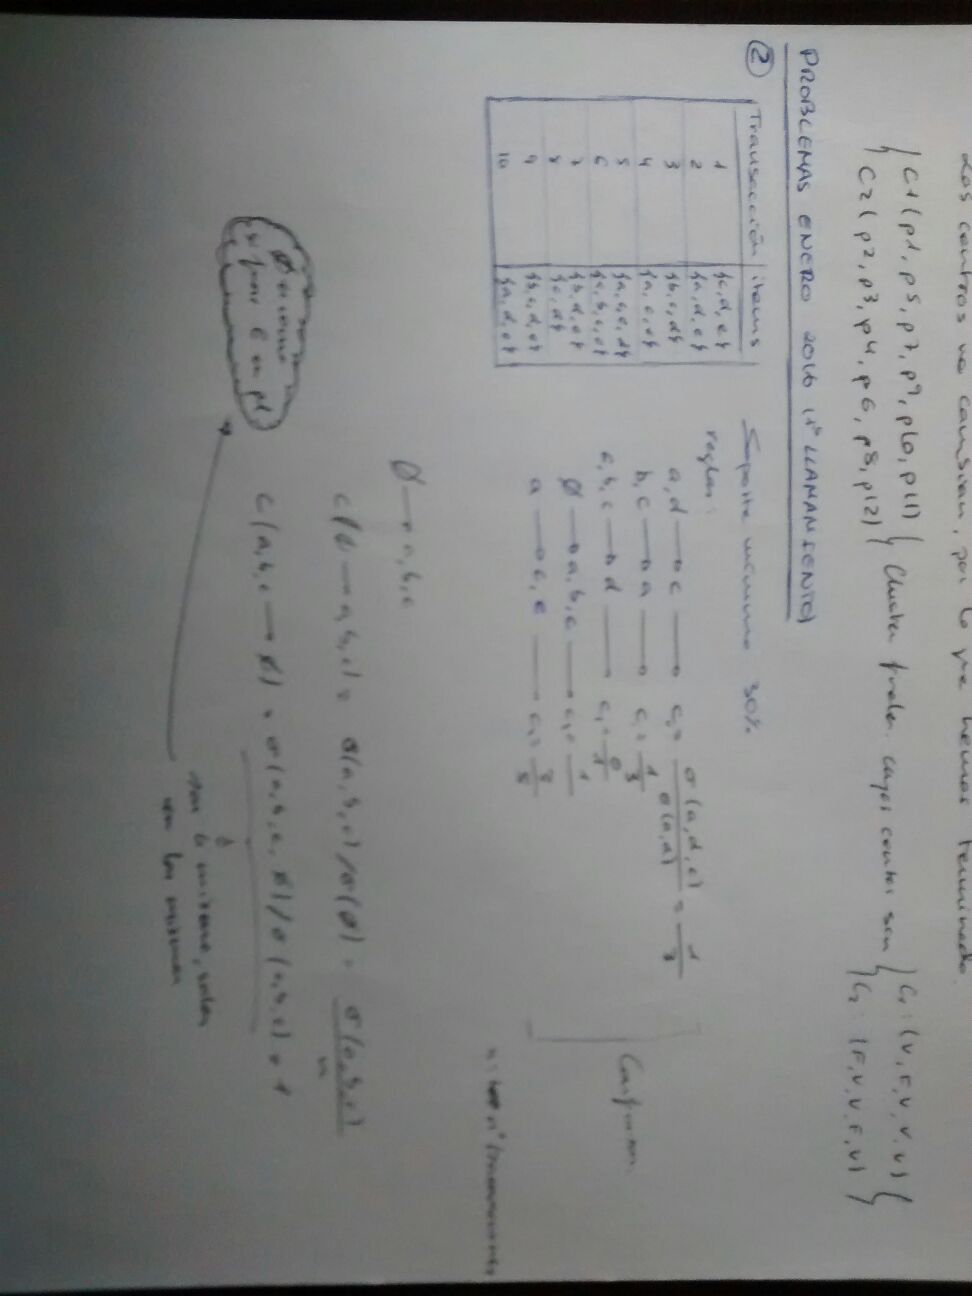 Los centros no cambian, por lo que hemos terminado.
C1(p1, p5, p7, p9, p10, p11)
C2(p2, p3, p4, p6, p8, p12)
Cluster cuyos centros son
C1: (V, F, V, V, V)
C2: (F, V, V, F, V)
PROBLEMAS ENERO 2016 (1º LLAMAMIENTO)
2
Transacción items
1 {c, d, e}
2 {a, d, e}
3 {b, c, d}
4 {a, c, e}
5 {a, c, e, d}
6 {a, b, c, e}
7 {b, d, e}
8 {c, d}
9 {b, c, d, e}
10 {a, d, e}
Soporte mínimo 30%
reglas:
a, d → c → c₁ = σ(a, d, c) / σ(a, d) = 1/3
b, c → a → c₁ = 1/3
b, c → d → = 0/1
∅ → a, b, c → = 1
a → c, e → = 3/5
nº transacciones
∅ → a, b, c
c(∅ → a, b, c) = σ(a, b, c) / σ(∅) = σ(a, b, c) / n
c(a, b, c → ∅) = σ(a, b, c, ∅) / σ(a, b, c) = 1
∅ es como
si fuese ϵ en pl
son lo mismo, salen
en las mismas